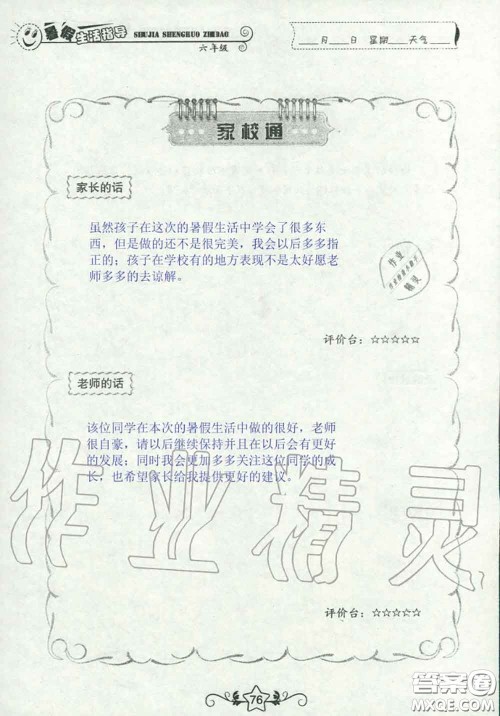 暑假生活指导 SHUJIA SHENGHUO ZHIDAO
六年级
___月___日 星期___天气___
家校通
家长的话
虽然孩子在这次的暑假生活中学会了很多东
西，但是做的还不是很完美，我会以后多多指
正的；孩子在学校有的地方表现不是太好愿老
师多多的去谅解。
作业
精灵
评价台：☆☆☆☆☆
老师的话
该位同学在本次的暑假生活中做的很好，老师
很自豪，请以后继续保持并且在以后会有更好
的发展；同时我会更加多多关注这位同学的成
长，也希望家长给我提供更好的建议。
作业精灵
评价台：☆☆☆☆☆
76
答案圈
MXQE.COM